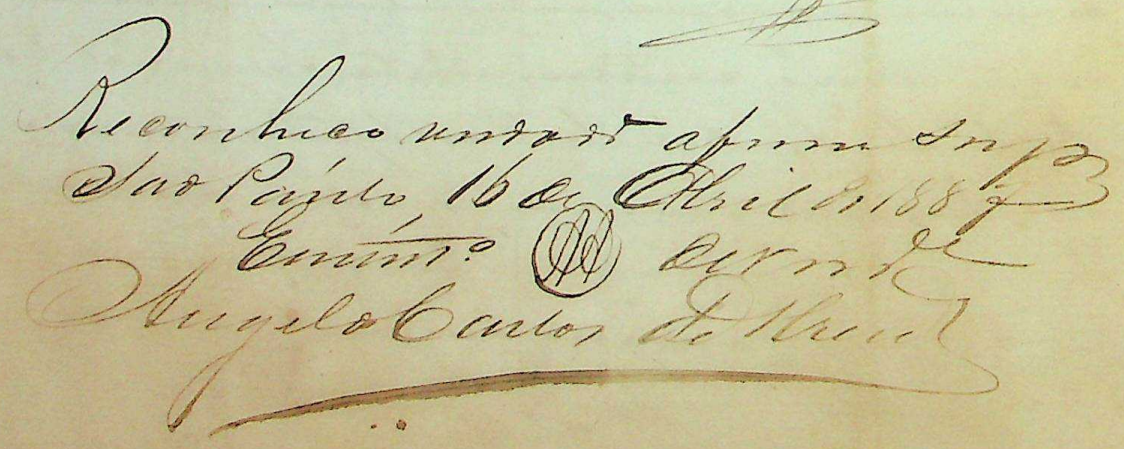 Reconheço verdadr a firma supra
São Paulo, 16 de Abril de 1887
Em testmo da verde
Angelo Carlos de Abreu